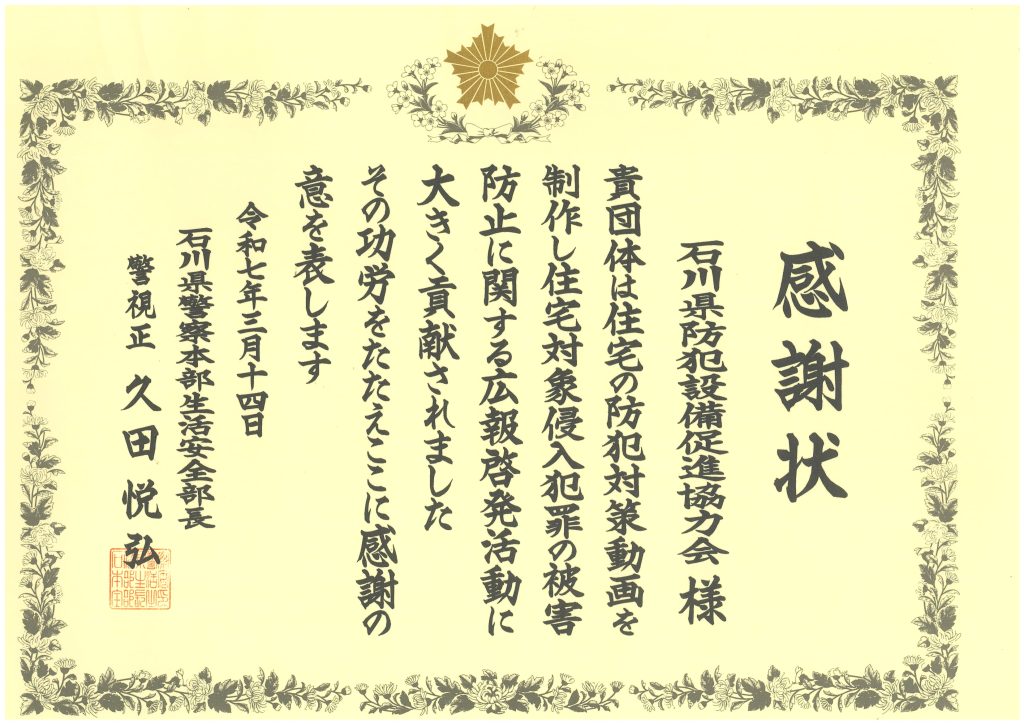 感謝状
石川県防犯設備促進協力会 様
貴団体は住宅の防犯対策動画を
制作し住宅対象侵入犯罪の被害
防止に関する広報啓発活動に
大きく貢献されました
その功労をたたえここに感謝の
意を表します
令和七年三月十四日
石川県警察本部生活安全部長
警視正 久田悦弘